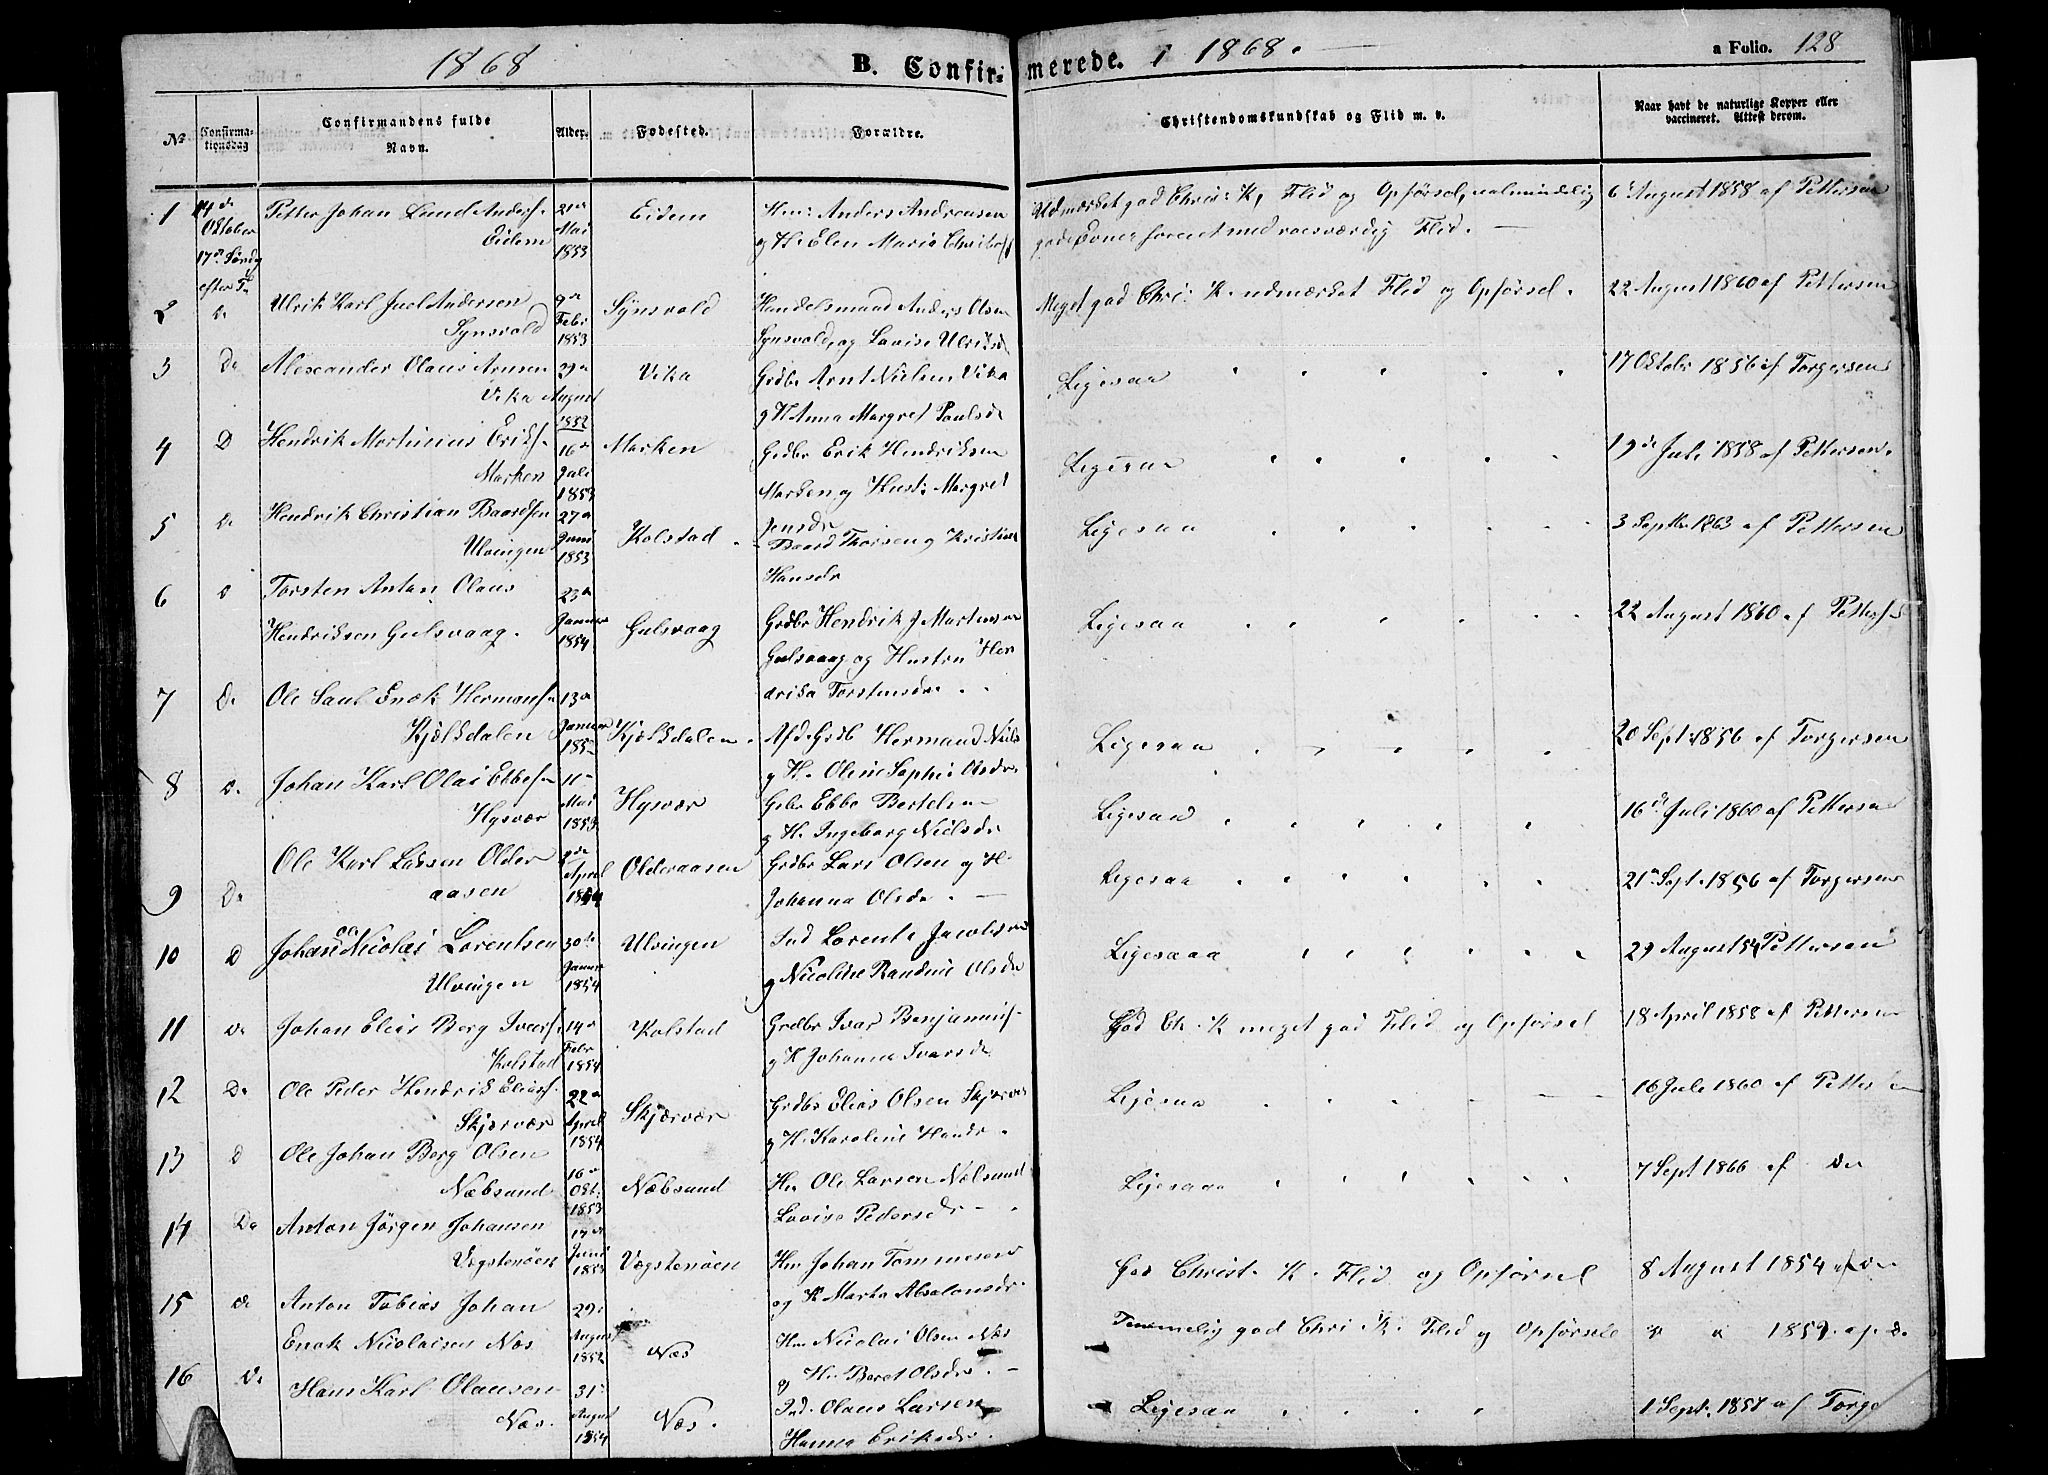 1868
B. Confirmerede. i 1868.
a Folio. 128
No
Confirmationsdag
Confirmandens fulde Navn.
Alder.
Fødested.
Forældre.
Christendomskundskab og Flid m. v.
Naar havt de naturlige Kopper eller vaccineret. Attest derom.
1 4de Oktober 17de Søndg efter Tr Petter Johan Lund Anders. Eidem 21de Mai 1853 Eidem Hm: Anders Andreasen
og H. Elen Maria
Udmærket god Chris: K, Flid og Opførsel, ualmindelig
gode Evner forenet med roesværdig Flid.
6 August 1858 af Pettersen
2 Do Ulrik Karl Juel Andersen Synsvold 9de Febr 1853 Synsvold Handelsmand Anders Olsen
Synsvold, og Lovise Ulriksd
Meget god Chri: K. udmærket Flid og Opførsel. 22 August 1860 af Pettersen
3 Do Alexander Olaus Arnsen Vika 29de August 1852 Vika Grdbr Arnt Nielsen Vika
og H Anna Margret Paulsdr
Ligesaa 17 Oktobr 1856 af Torgersen
4 D Hendrik Martinius Eriks. Marken 16de Juli 1853 Marken Grdbr Erik Hendriksen
Marken og Hust: Margret
Jensdr
Ligesaa 19de Juli 1858 af Pettersen.
5 Do Hendrik Christian Baardsen Ulvingen 27de Juni 1853 Kolstad. Baard Thorsen og Kristine
Hansdr
Ligesaa 3 Septbr 1863 af Pettersen
6 D Torsten Anton Olaus
Hendriksen Gulsvaag. 23de Januar 1854 Gulsvaag Grdbr Hendrik J Martensen
Gulsvaag og Hustru Hen
drika Torstensdr.
Ligesaa 22 August 1860 af Petters.
7 Do Ole Paul Enok Hermans. Kjølsdalen 13de Januar Kjølsdalen. Afd. Grdb Hermand Niels
og H. Oline Sophie Olsdr.
Ligesaa 20 Sept 1856 af Torgersen
8 D. Johan Karl Olai Ebbes. Hysvær 11te Mai 1853 Hysvær Grbr Ebbe Bertelsen
og H. Ingeborg Nielsdr
Ligesaa 16de Juli 1860 af Pettersen
9 Do Ole Karl Larsen Older
aasen 2de April Olderaasen Grdbr Lars Olsen og H.
Johanna Olsdr.
Ligesaa 21de Sept. 1856 af Torgersen
10 D Johan Nicolai Lorentsen Ulvingen 30te Januar 1854 Ulvingen Ind Lorents Jacobsen
og Nicoline Randine Olsdr
Ligesaaa 29 August 54 Pettersen
11 Do Johan Elias Berg Ivars. Kolstad 14de Febr 1854 Kolstad Grdbr Ivar Benjamins.
og H Johanna Ivarsdr
God Ch. K meget god Flid og Opførsel 18 April 1858 af Pettersen
12 Do Ole Peder Hendrik Elias. Skjærvær 22de April 1854 Skjærvær Grdbr Elias Olsen Skjærvær
og H. Karoline Hansdr.
Ligesaa 16 Juli 1860 af Pettersen
13 D Ole Johan Berg Olsen Næbsund 16de Oktb. 1853 Næbsund Hm Ole Larsen Næbsund
Lovise Pedersdr
Ligesaa 7 Sept 1866 af Do
14 Do Anton Jørgen Johansen Vegstenøen Juni 1853 Vegstenøen Hm Johan Tommesen
og H Marta Absalonsdr.
God Christ. K. Flid og Opførsel 8 August 1854 af Do
15 Do Anton Tobias Johan
Enok Nicolaisen Næs 29de August 1852 Næs Hm Nicolai Olsen Næs
og H. Beret Olsdr.
Temmelig god Chri K. Flid og Opførsel 1859. af. Do.
16 Do Hans Karl Olausen Næs. 31te August 1854 Næs. Ind. Olaus Larsen
Hanna Eriksdr.
Ligesaa 1 Sept. 1857 af Torge